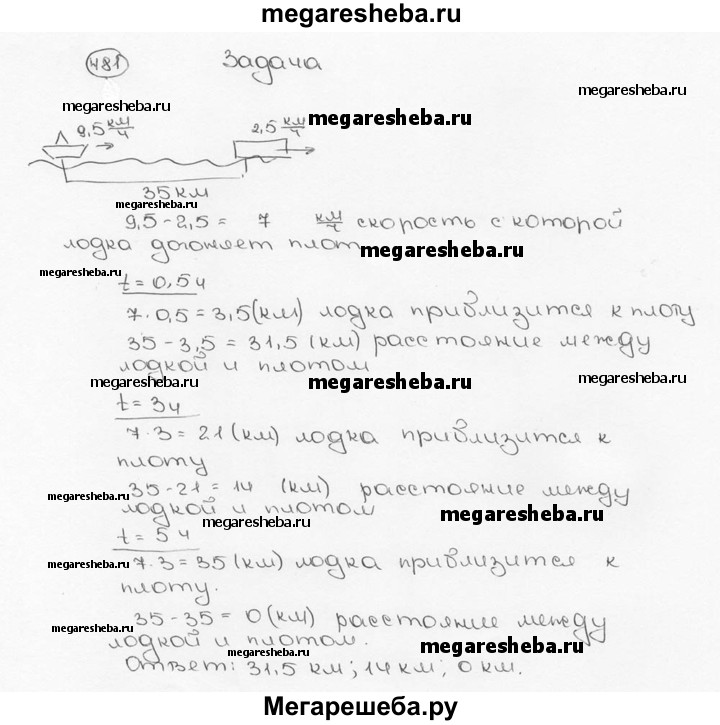 megaresheba.ru
481 Задача
megaresheba.ru
megaresheba.ru
megaresheba.ru
9,5 км/ч 2,5 км/ч
35 км
megaresheba.ru
9,5 - 2,5 = 7 км/ч скорость с которой
лодка догоняет плот
megaresheba.ru
megaresheba.ru
megaresheba.ru
t = 0,5ч
7 · 0,5 = 3,5 (км) лодка приблизится к плоту
35 - 3,5 = 31,5 (км) расстояние между
лодкой и плотом
megaresheba.ru
megaresheba.ru
megaresheba.ru
t = 3ч
7 · 3 = 21 (км) лодка приблизится к
плоту
35 - 21 = 14 (км) расстояние между
megaresheba.ru
лодкой и плотом
megaresheba.ru
megaresheba.ru
t = 5ч
7 · 3 = 35 (км) лодка приблизится к
megaresheba.ru
плоту.
35 - 35 = 0 (км) расстояние между
megaresheba.ru
лодкой и плотом.
megaresheba.ru
Ответ: 31,5 км; 14 км; 0 км.
Мегарешеба.ру